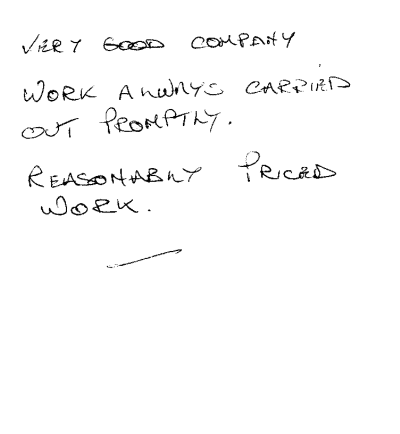 VERY GOOD COMPANY
WORK ALWAYS CARRIED
OUT PROMPTLY.
REASONABLY PRICED
WORK.